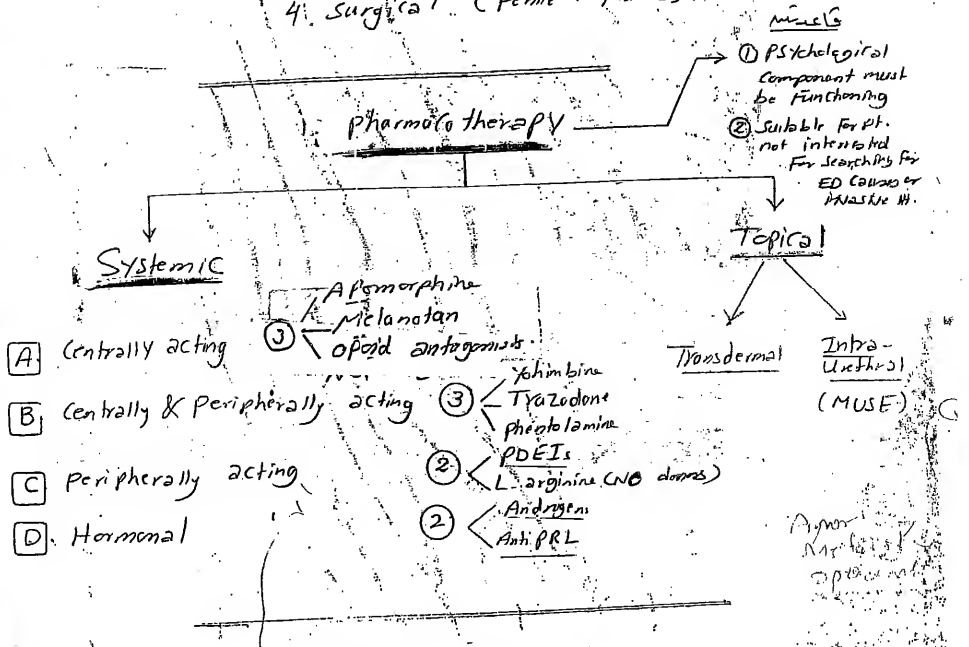 4. Surgical (
① Psychological
Component must
be Functioning
② Suitable for pt.
not interested
For Searching for
ED Causes or
Pharmacotherapy
Systemic
Topical
A Centrally acting ③ Apomorphine
Melanotan
opoid antagonists.
B Centrally & Peripherally acting ③ Yohimbine
Trazodone
phentolamine
C Peripherally acting ② PDEIs
L-arginine (NO donors)
D. Hormonal ② Androgens
Anti PRL
Transdermal
Intra-
Urethral
(MUSE)